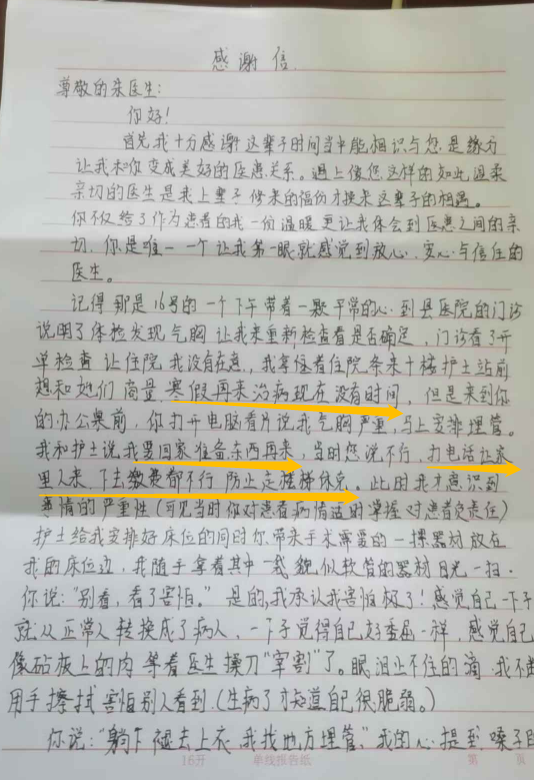 感谢信
尊敬的朱医生:
你好!
首先我十分感谢这辈子时间当中能相识与您.是缘分
让我和你变成美好的医患关系。遇上像您这样的如此温柔
亲切的医生是我上辈子修来的福份才换来这辈子的相遇。
你不仅给了作为患者的我一份温暖更让我体会到医患之间的亲
切.你是唯一一个让我第一眼就感觉到放心、安心与信任的
医生。
记得那是16号的一个下午带着一颗平常的心.到县医院的门诊
说明了体检发现气胸让我来重新检查看是否确定,门诊看了开
单检查让住院.我没有在意.我拿住着住院条来十楼护士站前
想和她们商量.寒假再来治病现在没有时间,但是来到你
的办公桌前,你打开电脑看片说我气胸严重,马上安排埋管。
我和护士说我要回家准备东西再来,当时您说不行.打电话让家
里人来.下去缴费都不行防止走楼梯休克。此时我才意识到
事情的严重性(可见当时你对患者病情适时掌握对患者负责任)
护士给我安排好床位的同时你带来手术需要的一摞器材放在
我的床位边,我随手拿着其中一我貌似软管的器材目光一扫.
你说:"别看,看了害怕。"是的,我承认我害怕极了!感觉自己一下子
就从正常人转换成了病人.一下子觉得自己好委屈一样,感觉自己
像砧板上的肉等着医生操刀"宰割"了。眼泪止不住的滴.我不断
用手擦拭害怕别人看到.(生病了才知道自己很脆弱。)
你说:"躺下褪去上衣.我找地方埋管."我的心提到嗓子目
16开 单线报告纸 第 页